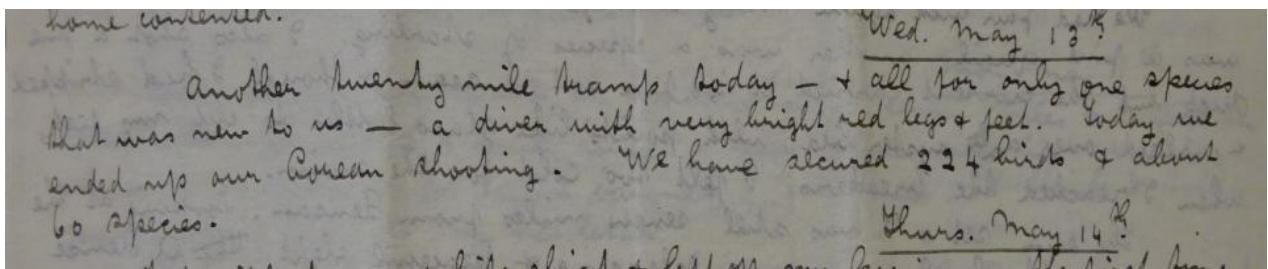 home contented.
Wed. May 13th
Another twenty mile tramp today — & all for only one species
that was new to us — a diver with very bright red legs & feet. Today we
ended up our Corean shooting. We have secured 224 birds & about
60 species.
Thurs. May 14th